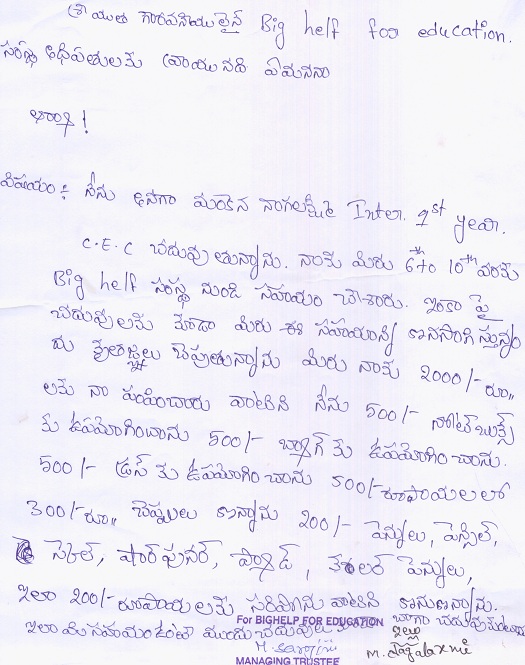 శ్రీయుత గౌరవనీయులైన Big helf foo education.
సంస్థ అధిపతులకు వ్రాయునది ఏమనగా
విషయం : నేను అనగా మంకెన నాగలక్ష్మి Inter. 1st year.
C.E.C చదువుతున్నాను. నాకు మీరు 6th to 10th వరకు
Big helf సంస్థ నుండి సహాయం చేశారు. ఇంకా పై
చదువులకు కూడా మీరు ఈ సహాయాన్ని కొనసాగిస్తున్నం
దు కృతజ్ఞతలు చెపుతున్నాను మీరు నాకు 2000/- రూ॥
లకు నా పంపించారు వాటిని నేను 500/- నోట్ బుక్స్
కు ఉపయోగించాను 500/- బ్యాగ్ కు ఉపయోగించాను.
500/- డ్రస్ కు ఉపయోగించాను 500/- రూపాయలలో
300/- రూ॥ చెప్పులు కొన్నాను 200/- పెన్నులు, పెన్సిల్,
స్కేల్, షార్పునర్, ప్యాడ్, కలర్ పెన్నులు,
ఇలా 200/- రూపాయలకు సరిపోను వాటిని కొనుకొన్నాను.
ఇలా మీ సహయం ఉంటే ముందు చదువులు బాగా చదువుకుంటాను
For BIGHELP FOR EDUCATION
M. Sarojini
MANAGING TRUSTEE
ఇట్లు
M. Nagalaxmi